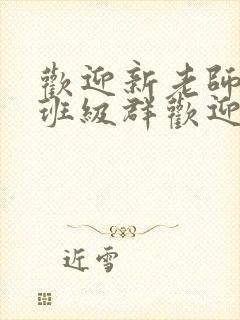 歡迎新老師
班級群歡迎
近雪